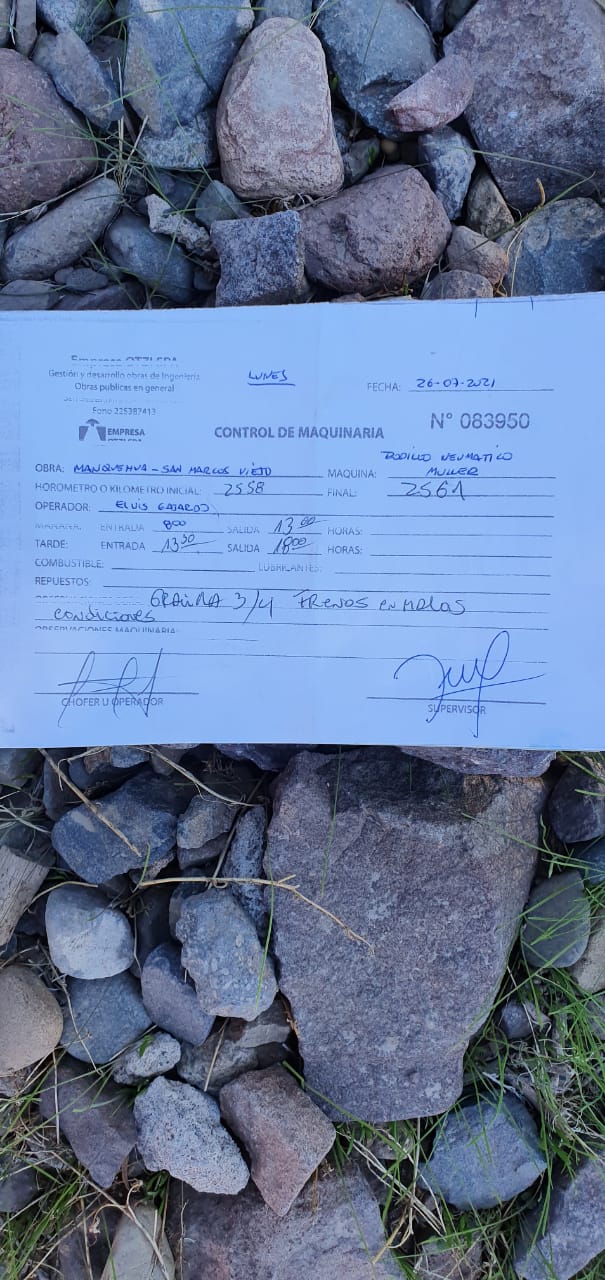 Empresa OTZI SPA
Gestión y desarrollo obras de Ingeniería
Obras publicas en general
Fono 225387413
EMPRESA
LUNES
FECHA: 26-07-2021
N° 083950
CONTROL DE MAQUINARIA
OBRA: MANQUEHUA - SAN MARCOS VIEJO
MAQUINA: RODILLO NEUMATICO
MULLER
HOROMETRO O KILOMETRO INICIAL: 2558 FINAL: 2561
OPERADOR: ELVIS GAJARDO
MAÑANA: ENTRADA 800 SALIDA 13 00 HORAS:
TARDE: ENTRADA 13 30 SALIDA 1800 HORAS:
COMBUSTIBLE: LUBRICANTES:
REPUESTOS:
3/4 FRENOS EN MALAS
CONDICIONES
OBSERVACIONES MAQUINARIA:
CHOFER U OPERADOR
SUPERVISOR